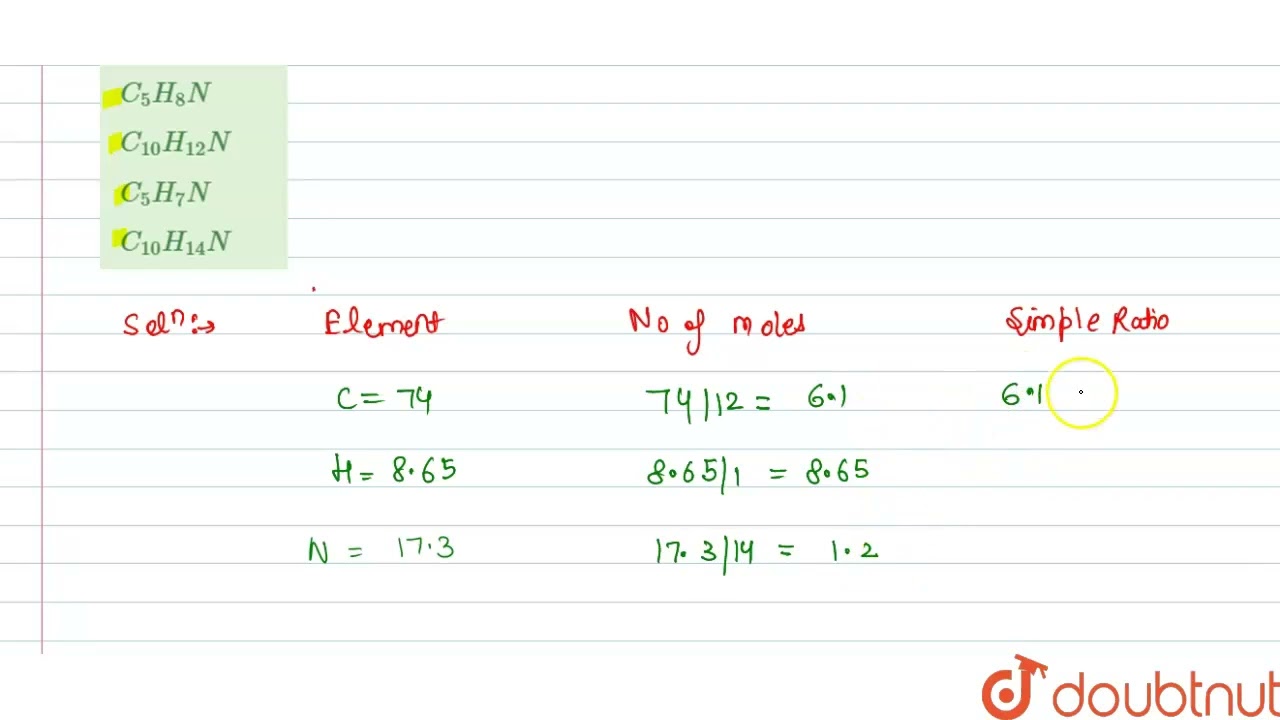 C₅H₈N
C₁₀H₁₂N
C₅H₇N
C₁₀H₁₄N
Solⁿ:→ Element No of moles Simple Ratio
C = 74 74/12 = 6.1 6.1
H = 8.65 8.65/1 = 8.65
N = 17.3 17.3/14 = 1.2
doubtnut